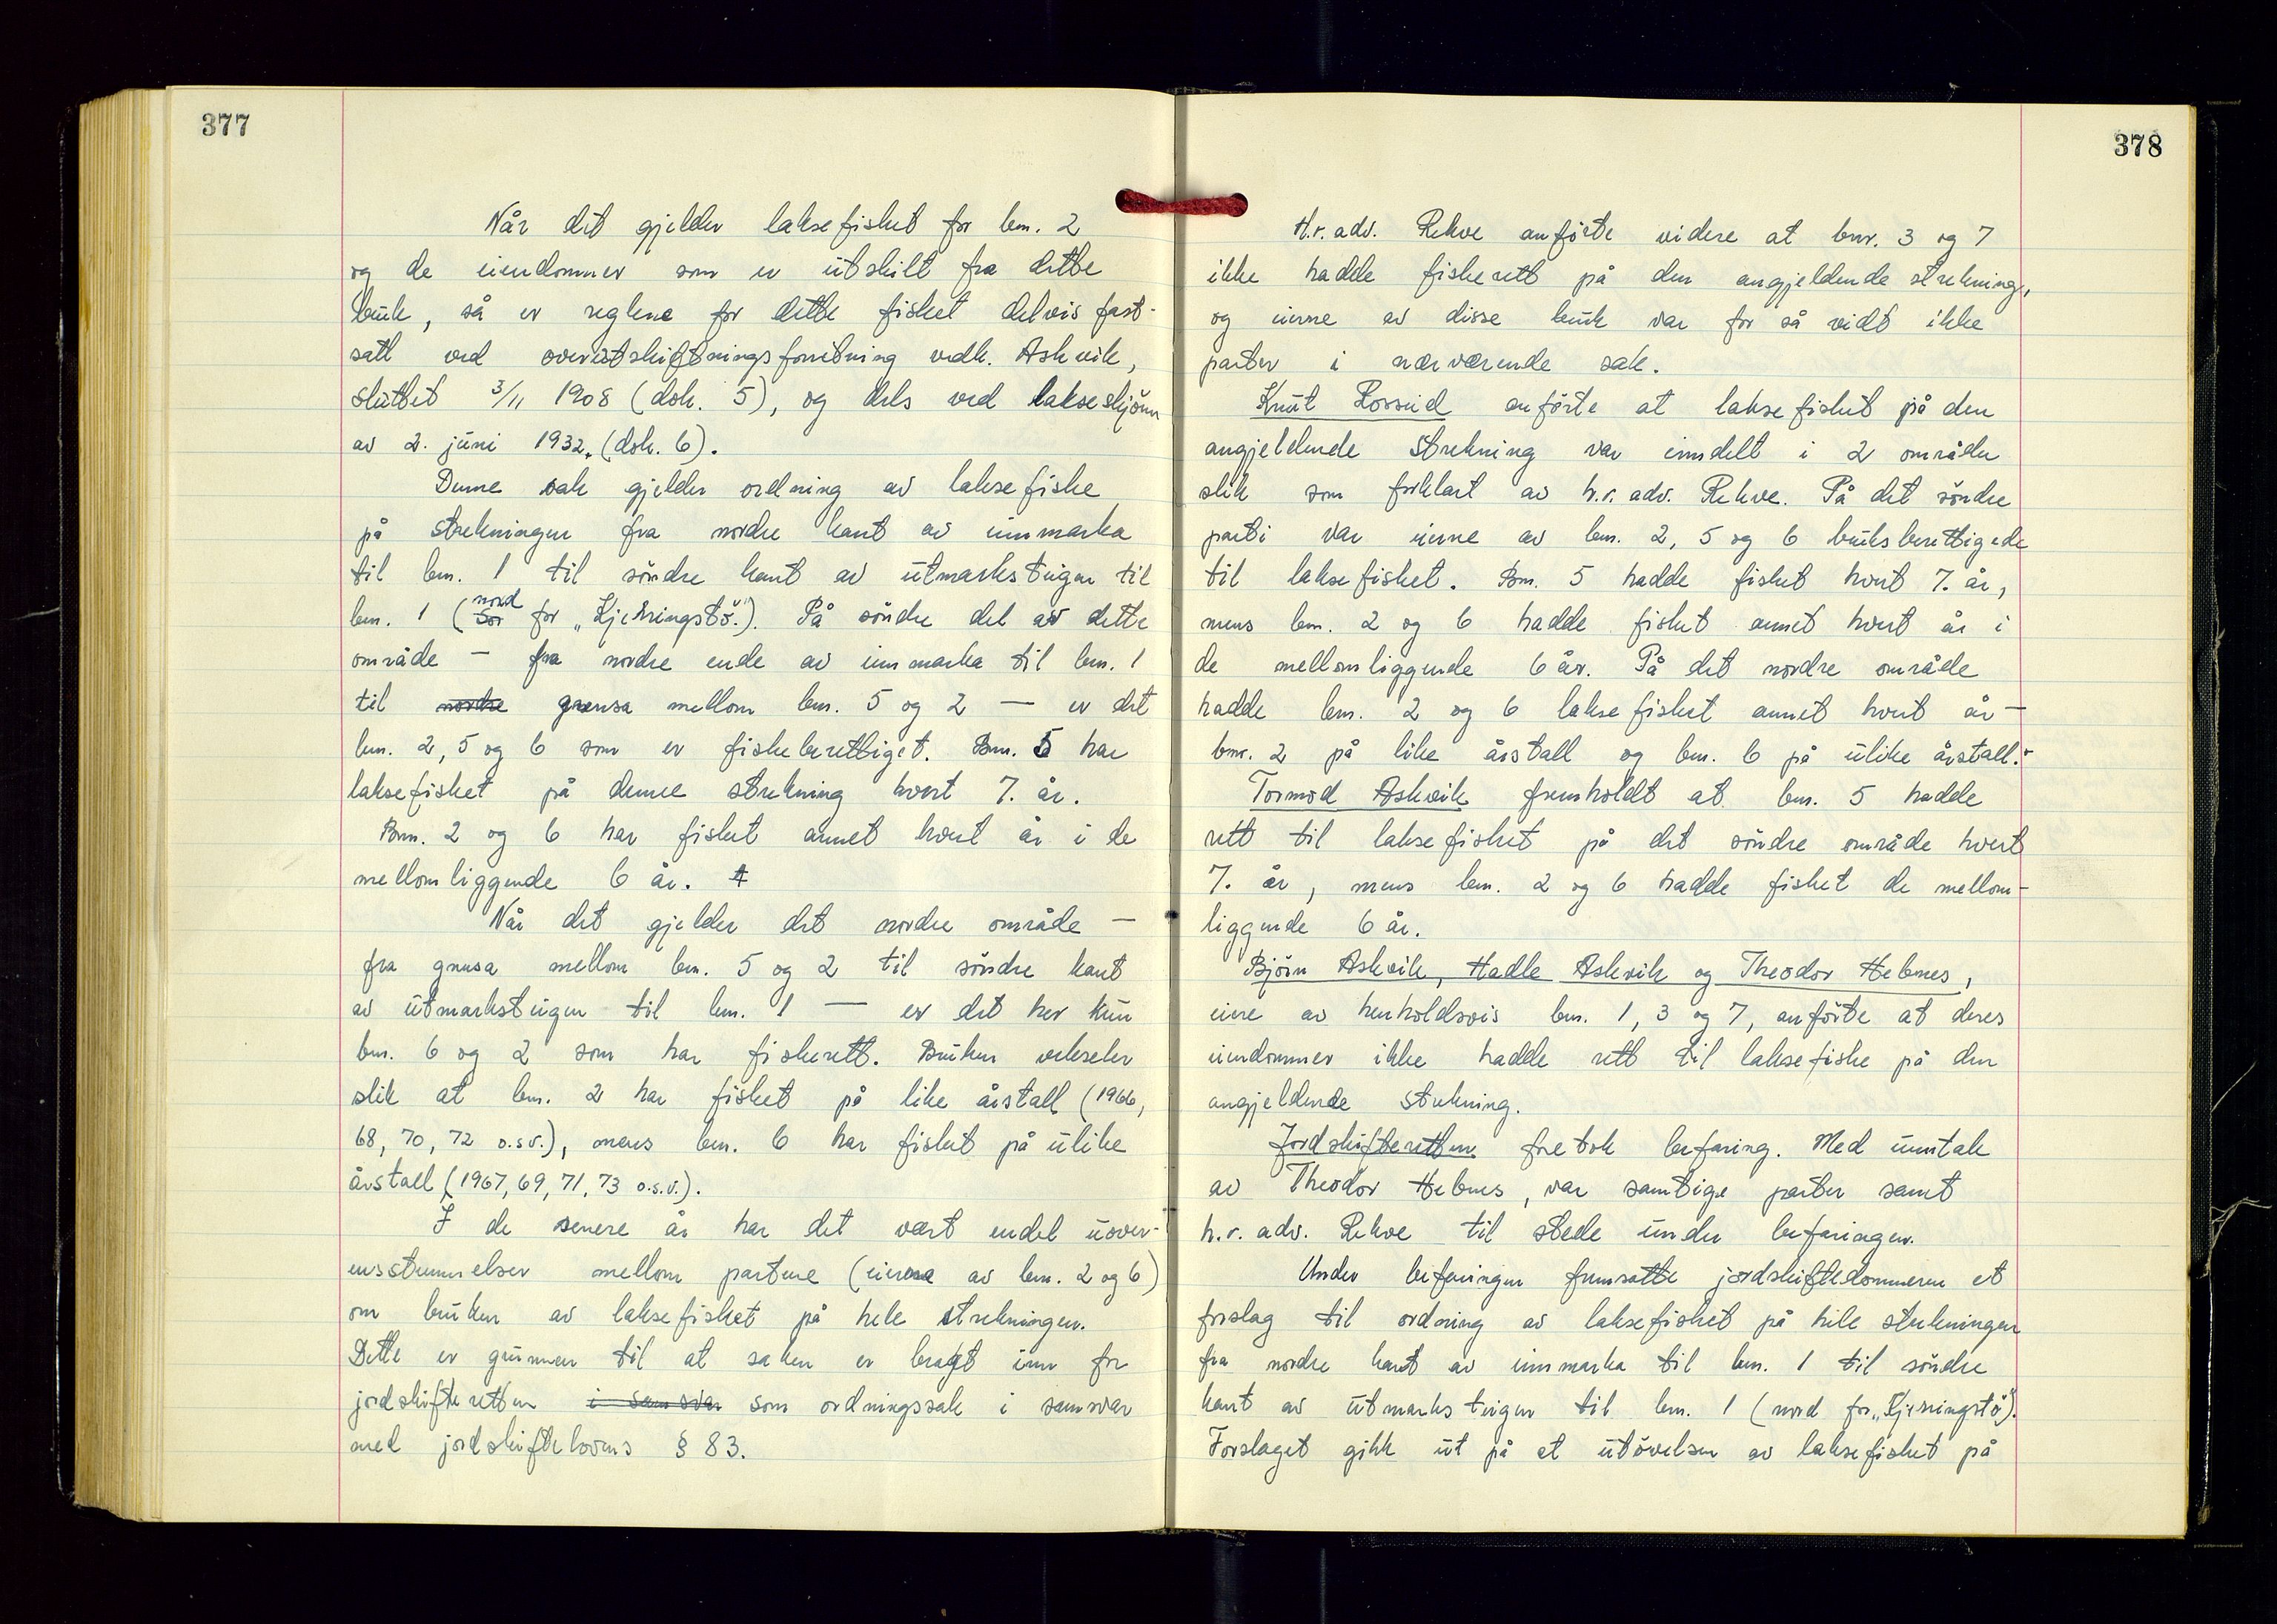 377
Når det gjelder laksefisket for bnr. 2
og de eiendommer som er utskilt fra dette
bruk, så er reglene for dette fisket delvis fast-
satt ved overutskiftningsforretning vedk. Askvik,
sluttet 3/11 1908 (dok. 5), og dels ved lakseskjønn
av 2. juni 1932. (dok. 6).
Denne sak gjelder ordning av laksefiske
på strekningen fra nordre kant av innmarka
til bnr. 1 til søndre kant av utmarksteigen til
bnr. 1 (sør nord for „Kjerringstø"). På søndre del av dette
område — fra nordre ende av innmarka til bnr. 1
til nordre grensa mellom bnr. 5 og 2 — er det
bnr. 2, 5 og 6 som er fiskeberettiget. Bnr. 5 har
laksefisket på denne strekning hvert 7. år.
Bnr. 2 og 6 har fisket annet hvert år i de
mellomliggende 6 år.
Når det gjelder det nordre område —
fra grensa mellom bnr. 5 og 2 til søndre kant
av utmarksteigen til bnr. 1 — er det her kun
bnr. 6 og 2 som har fiskerett. Bruken veksler
slik at bnr. 2 har fisket på like årstall (1966,
68, 70, 72 o.s.v.), mens bnr. 6 har fisket på ulike
årstall (1967, 69, 71, 73 o.s.v.).
I de senere år har det vært endel uover-
ensstemmelser mellom partene (eierne av bnr. 2 og 6)
om bruken av laksefisket på hele strekningen.
Dette er grunnen til at saken er bragt inn for
jordskifteretten i samsvar som ordningssak i samsvar
med jordskiftelovens § 83.
378
H.r.adv. Rekve anførte videre at bnr. 3 og 7
ikke hadde fiskerett på den angjeldende strekning,
og eierne av disse bruk var for så vidt ikke
parter i nærværende sak.
Knut Rosseid anførte at laksefisket på den
angjeldende strekning var inndelt i 2 områder
slik som forklart av h.r.adv. Rekve. På det søndre
parti var eierne av bnr. 2, 5 og 6 bruksberettigede
til laksefisket. Bnr. 5 hadde fisket hvert 7. år,
mens bnr. 2 og 6 hadde fisket annet hvert år i
de mellomliggende 6 år. På det nordre område
hadde bnr. 2 og 6 laksefisket annet hvert år —
bnr. 2 på like årstall og bnr. 6 på ulike årstall.
Tormod Askvik fremholdt at bnr. 5 hadde
rett til laksefisket på det søndre område hvert
7. år, mens bnr. 2 og 6 hadde fisket de mellom-
liggende 6 år.
Bjørn Askvik, Hadle Askvik og Theodor Hebnes,
eiere av henholdsvis bnr. 1, 3 og 7, anførte at deres
eiendommer ikke hadde rett til laksefiske på den
angjeldende strekning.
Jordskifteretten foretok befaring. Med unntak
av Theodor Hebnes, var samtige parter samt
h.r.adv. Rekve til stede under befaringen.
Under befaringen fremsatte jordskiftedommeren et
forslag til ordning av laksefisket på hele strekningen
fra nordre kant av innmarka til bnr. 1 til søndre
kant av utmarksteigen til bnr. 1 (nord for „Kjerringstø").
Forslaget gikk ut på at utøvelsen av laksefisket på